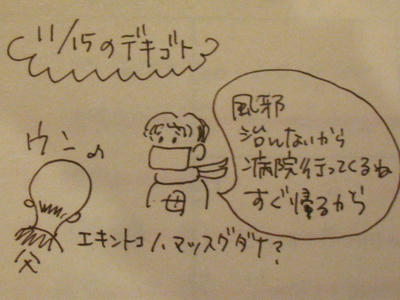 11/15のデキゴト
風邪
治んないから
病院行ってくるね
すぐ帰るから
母
ウン♪
父
エキントコハマッスグダナ?